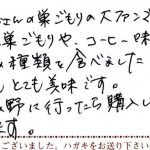 さんの巣ごもりの大ファンで
巣ごもりや、コーヒー味
種類を食べました
とても美味です。
野に行ったら購入し
です。
ございました。ハガキをお送り下さい